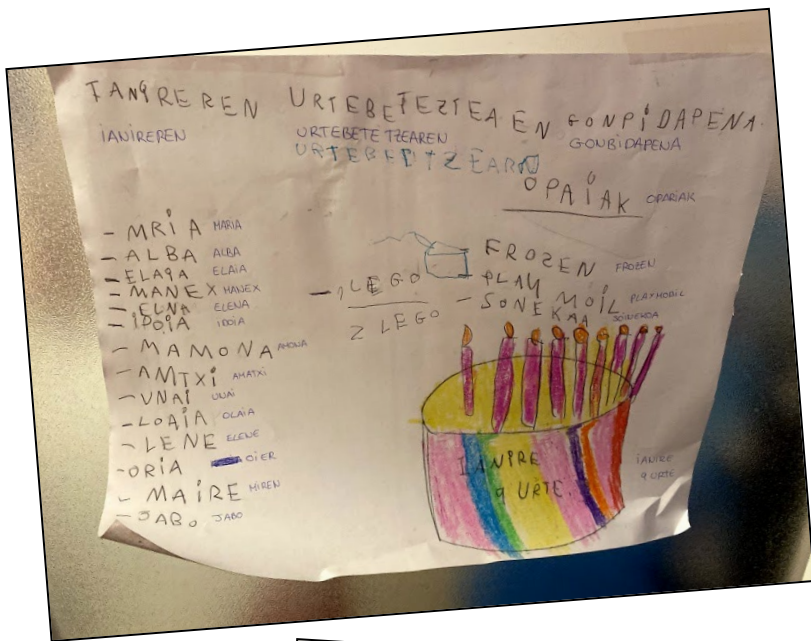 IANIREREN URTEBETEZTEAEN GONPIDAPENA.
IANIREREN URTEBETETZEAREN GONBIDAPENA
OPAIAK OPARIAK
- MRIA MARIA
- ALBA ALBA
- ELAIA ELAIA
- MANEX MANEX
- ELNA ELENA
- IDOIA IDOIA
- MAMONA AMONA
- AMTXI AMATXI
- UNAI UNAI
- LOAIA OLAIA
- LENE ELENE
- ORIA OIER
- MAIRE MIREN
- JABO JABO
- 1 LEGO
2 LEGO
FROZEN FROZEN
- PLAY MOIL PLAYMOBIL
SONEKAA SOINEKOA
IANIRE
9 URTE.
IANIRE
9 URTE